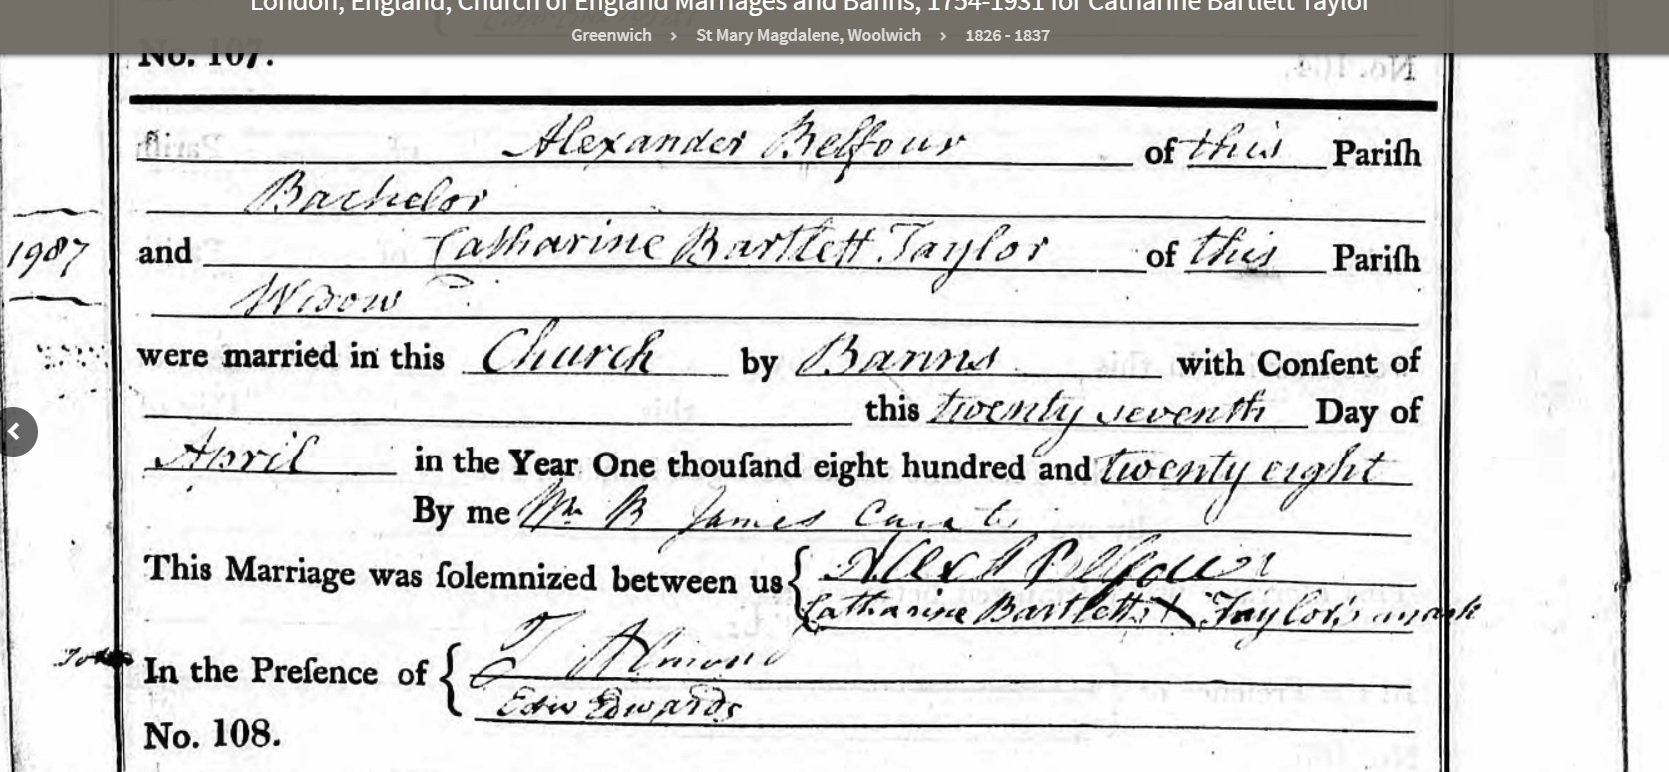 London, England, Church of England Marriages and Banns, 1754-1931 for Catharine Bartlett Taylor
Greenwich › St Mary Magdalene, Woolwich › 1826 - 1837
No. 107.
Alexander Belfour of this Pariſh
Bachelor
1987
and Catharine Bartlett Taylor of this Pariſh
Widow
were married in this Church by Banns with Conſent of
this twenty seventh Day of
April in the Year One thouſand eight hundred and twenty eight
By me Wm B James Curate
This Marriage was ſolemnized between us { Alexd Belfour
Catharine Bartlett X Taylor's mark
In the Preſence of { T Almond
Edw Edwards
No. 108.